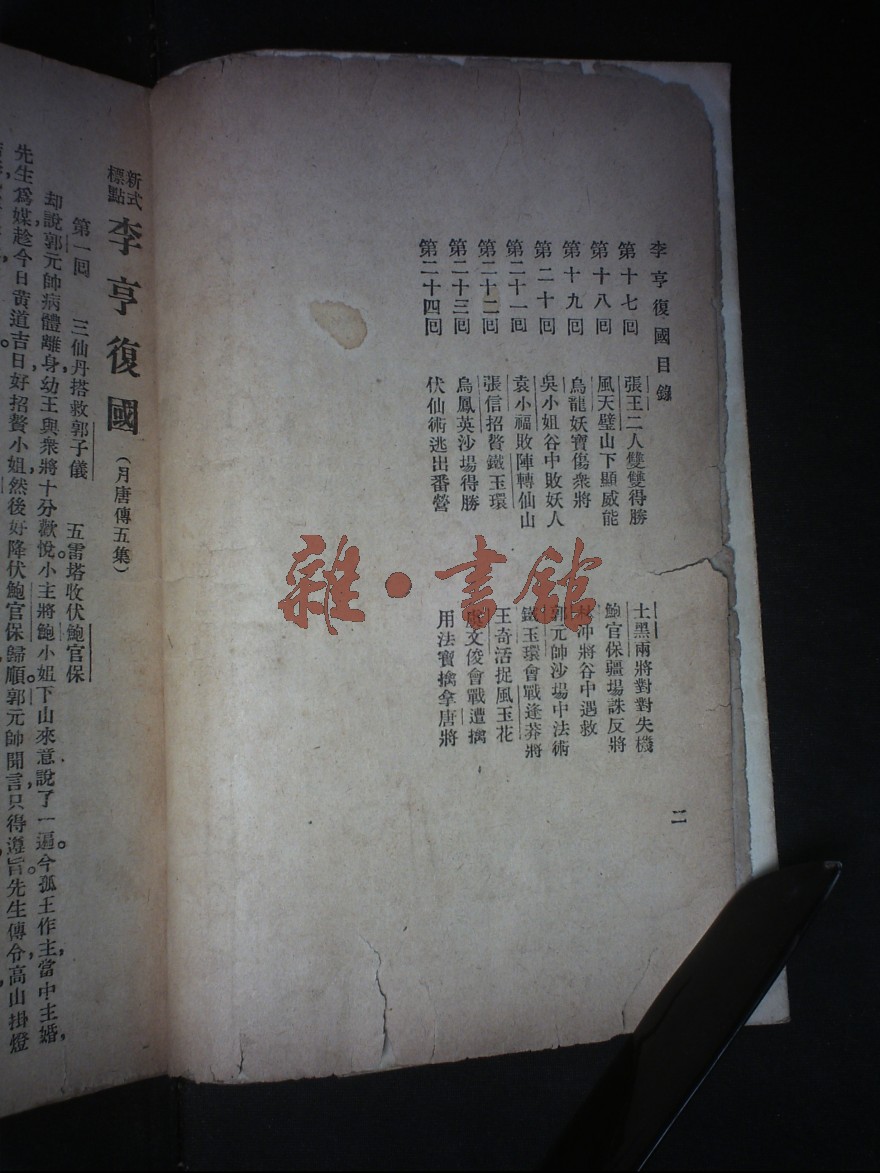 李亨復國目錄
第十七囘 張王二人雙雙得勝 士黑兩將對對失機
第十八囘 風天璧山下顯威能 鮑官保疆場誅反將
第十九囘 烏龍妖寶傷衆將 沖將谷中遇救
第二十囘 吳小姐谷中敗妖人 郭元帥沙場中法術
第二十一囘 袁小福敗陣轉仙山 鐵玉環會戰逢莽將
第二十二囘 張信招贅鐵玉環 王奇活捉風玉花
第二十三囘 烏鳳英沙場得勝 文俊會戰遭擒
第二十四囘 伏仙術逃出番營 用法寶擒拿唐將
二
雜·書館
新式標點 李亨復國 (月唐傳五集)
第一囘 三仙丹搭救郭子儀 五雷塔收伏鮑官保
却說郭元帥病體離身,幼王與衆將十分歡悅。小主將鮑小姐下山來意說了一遍。今孤王作主,當中主婚,
先生爲媒,趁今日黃道吉日。好招贅小姐,然後好降伏鮑官保歸順。郭元帥聞言,只得遵旨。先生傳令,高山掛燈